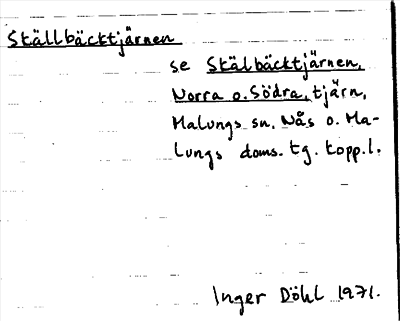 Ställbäcktjärnen
se Stälbäcktjärnen,
Norra o. Södra, tjärn,
Malungs sn, Nås o. Ma-
lungs doms. tg. topp.l.
Inger Döhl 1971.